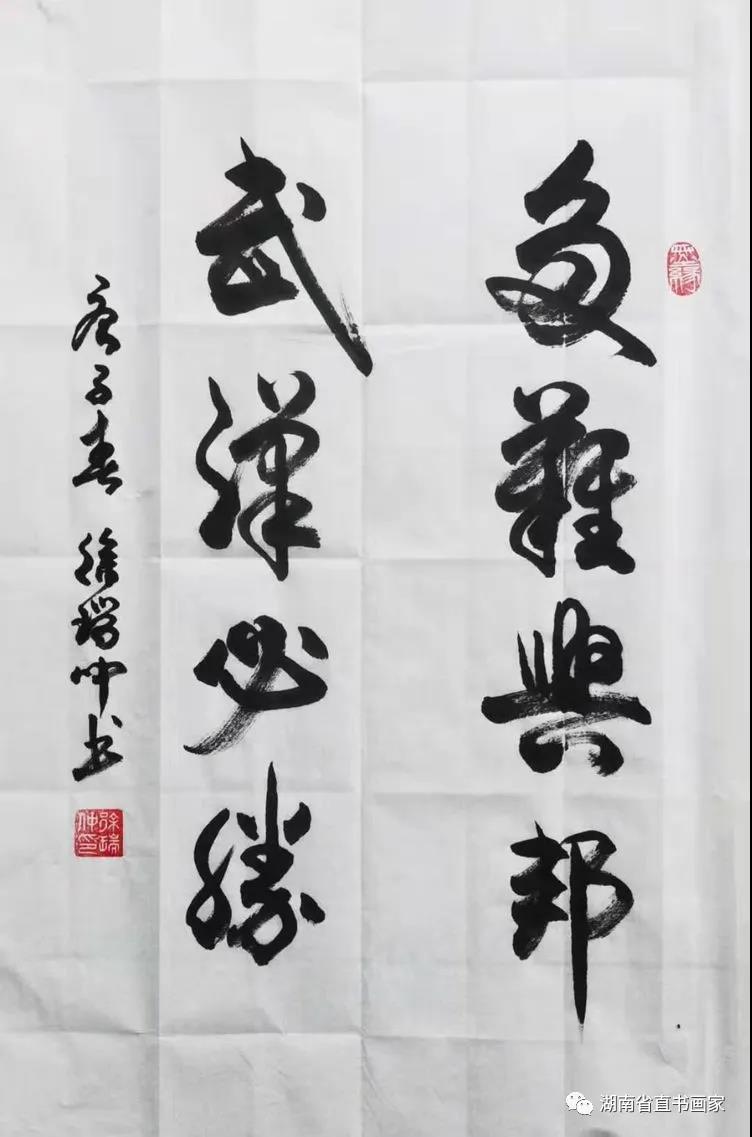 多難興邦
武漢必勝
庚子春 徐瑞仲书
徐瑞仲印
湖南省直书画家